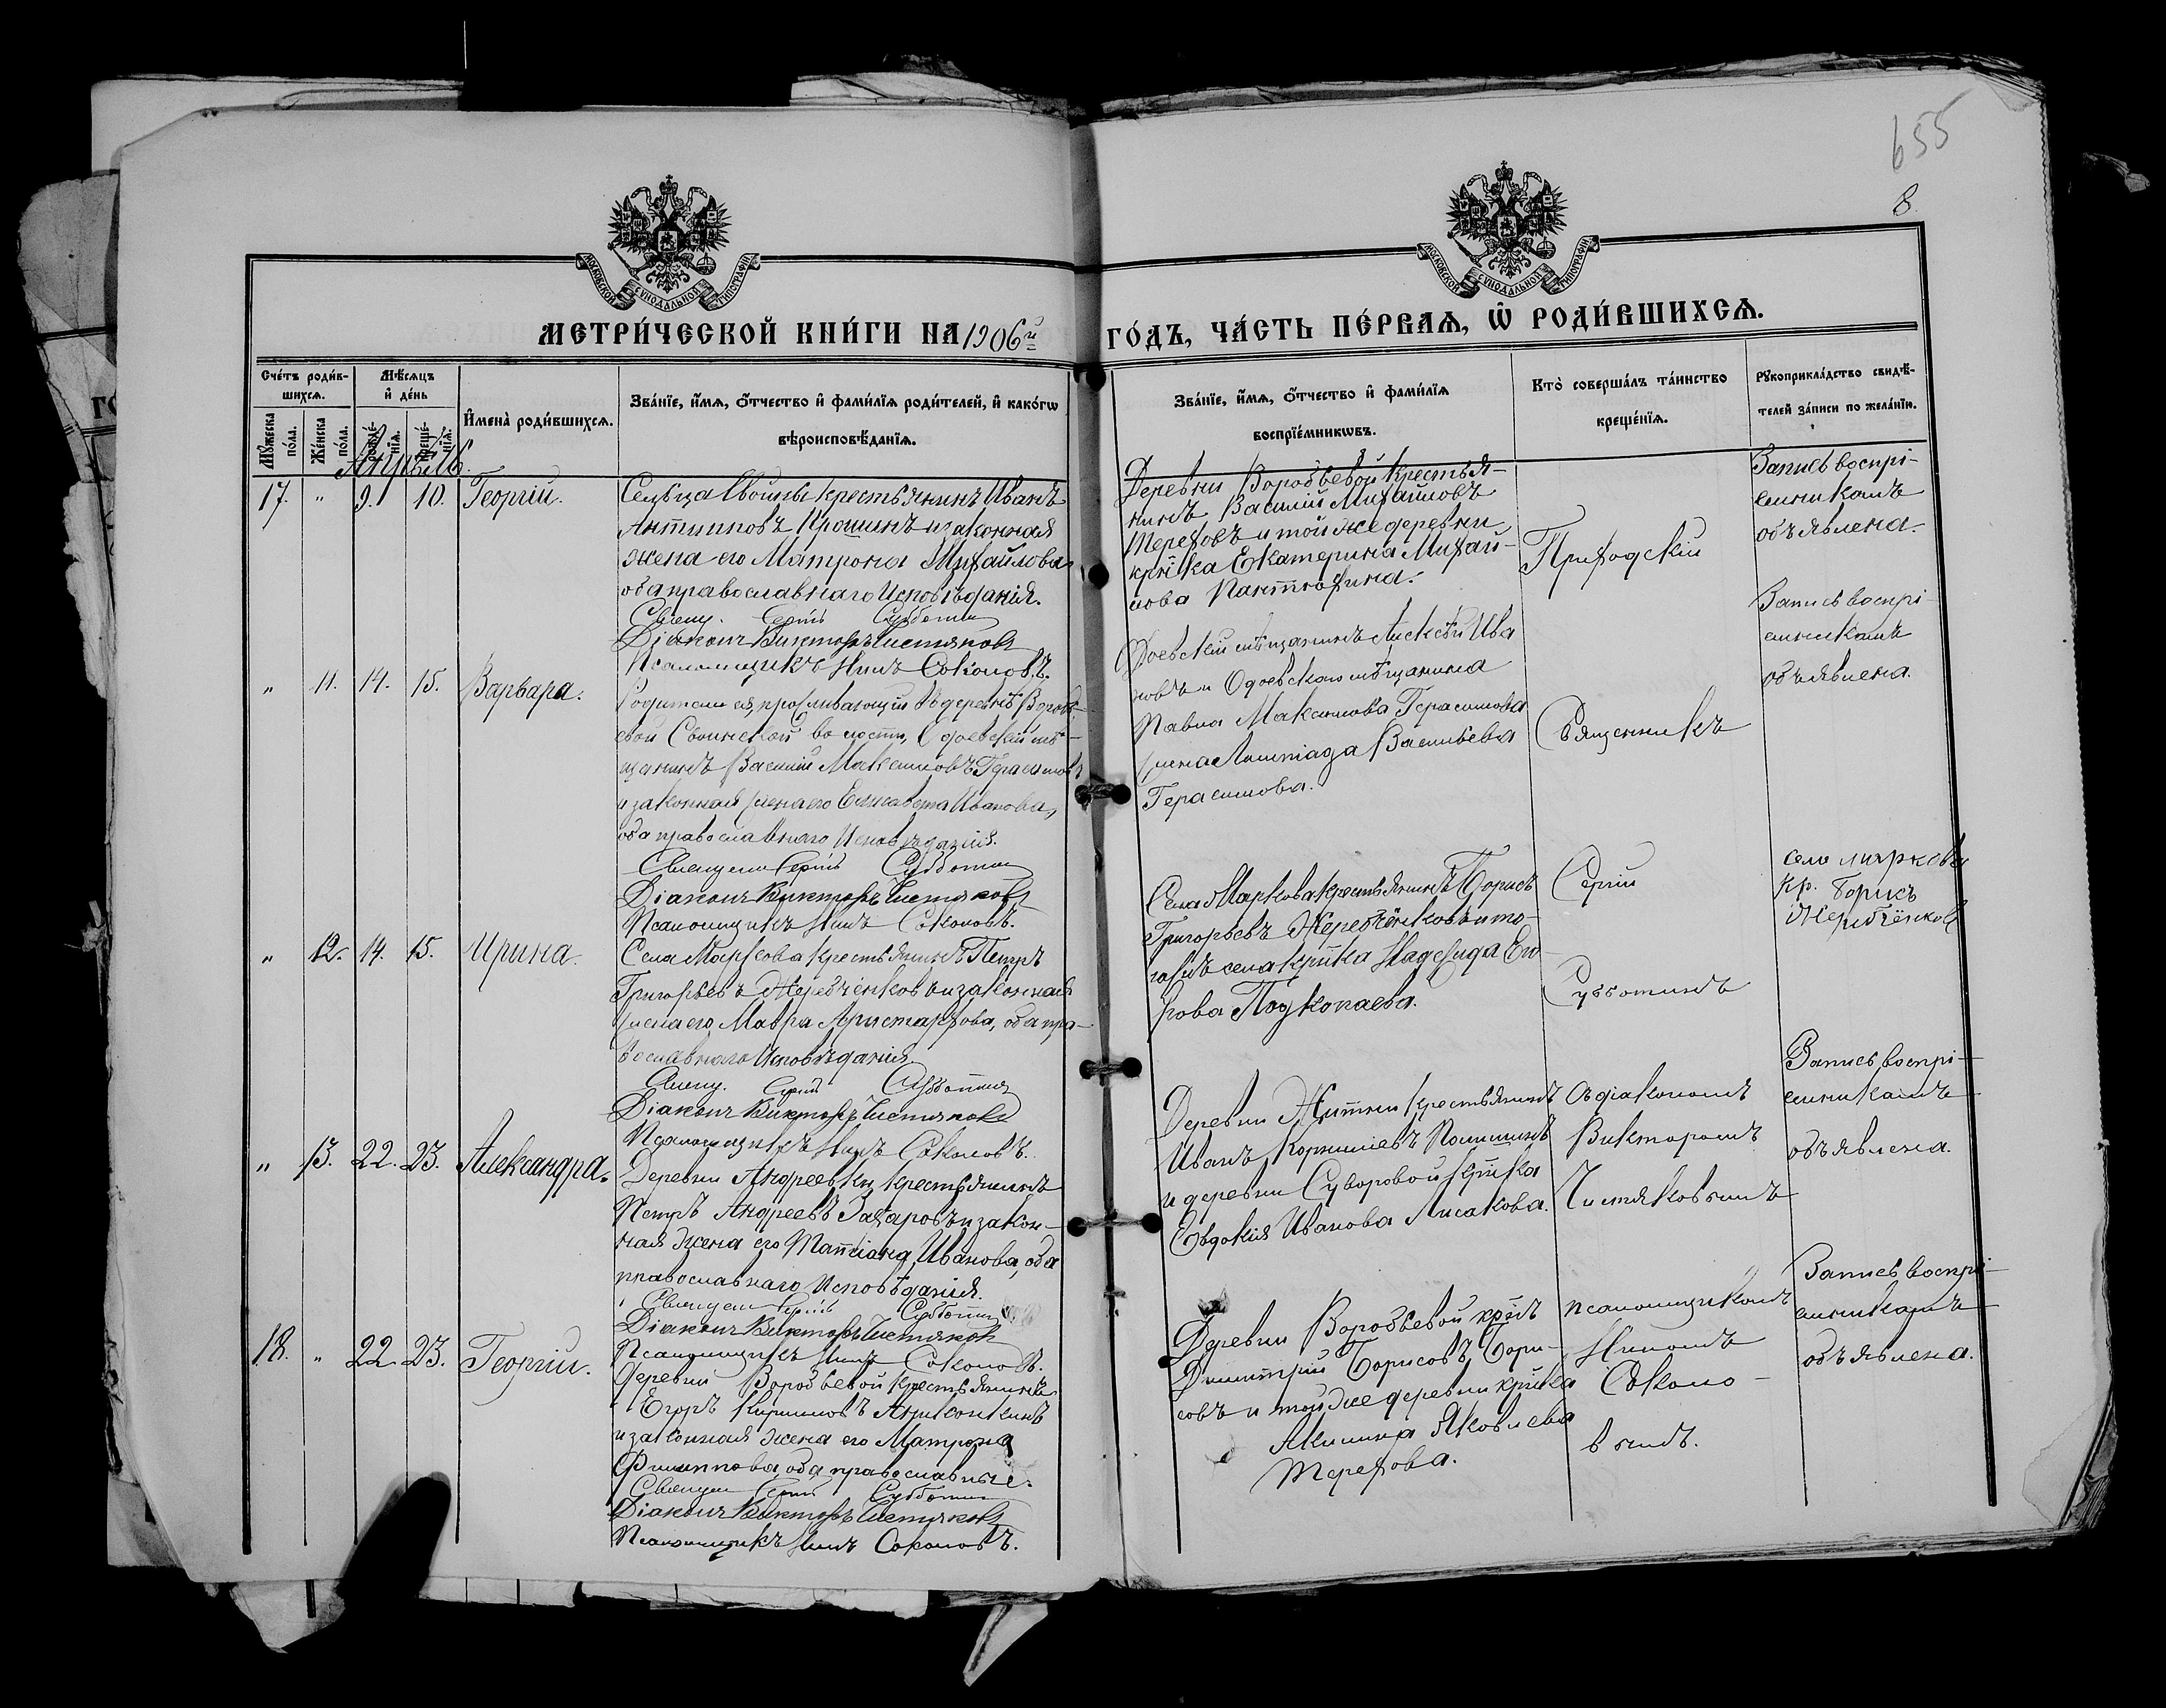 655
8
МОСКОВСКОЙ СѴНОДАЛЬНОЙ ТИПОГРАФІИ
МОСКОВСКОЙ СѴНОДАЛЬНОЙ ТИПОГРАФІИ
МЕТРИ́ЧЕСКОЙ КНИ́ГИ НА 1906й ГО́ДЪ, ЧА́СТЬ ПЕ́РВАѦ, Ѽ РОДИ́ВШИХСѦ.
Сче́тъ роди́в-
шихсѧ.
Мꙋ́жеска по́ла.
Же́нска по́ла.
Мѣ́сѧцъ
и҆ де́нь
рожде́-
нїѧ.
креще́-
нїѧ.
И҆мена̀ роди́вшихсѧ.
Зва́нїе, и҆́мѧ, ѻ҆́тчество и҆ фами́лїѧ роди́телей, и҆ како́гѡ
вѣроисповѣ́данїѧ.
Зва́нїе, и҆́мѧ, ѻ҆́тчество и҆ фами́лїѧ
воспрїе́мникѡвъ.
Кто̀ соверша́лъ та́инство
креще́нїѧ.
Рꙋкоприкла́дство свидѣ́-
телей за́писи по жела́нїю.
Апрѣль.
17. " 9. 10. Георгій.
Сельца Свойны крестьянинъ Иванъ
Антиповъ Ерошинъ и законная
жена его Матрона Михайлова
оба православнаго Исповѣданія.
Священ. Сергій Субботин
Діаконъ Викторъ Чистяков
Псаломщикъ Нилъ Соколовъ.
Деревни Воробьевой крестья-
нинъ Василій Михайловъ
Тереховъ и той же деревни
кр̃нка Екатерина Михай-
лова Пантюхина.
Приходскій
Запись воспрі-
емникамъ
объявлена.
" 11. 14. 15. Варвара.
Родители ея, проживающіи въ деревнѣ Воробь-
евой Свойнской волости, Одоевскій мѣ-
щанинъ Василій Максимовъ Герасимовъ
и законная жена его Елисавета Иванова,
оба православнаго Исповѣданія.
Священн Сергій Субботин
Діаконъ Викторъ Чистяков
Псаломщикъ Нилъ Соколовъ.
Одоевскій мѣщанинъ Алексѣй Ива
новъ и Одоевскаго мѣщанина
Павла Максимова Герасимова
жена Василіева
Герасимова.
Священникъ
Запись воспрі-
емникамъ
объявлена.
" 12. 14. 15. Ирина.
Села Маркова крестьянинъ Петръ
Григорьевъ Жеребчёнковъ и законная
жена его Мавра Аристархова, оба пра-
вославнаго Исповѣданія.
Священ. Сергій Субботин
Діаконъ Викторъ Чистяков
Псаломщикъ Нилъ Соколовъ.
Села Маркова крестьянинъ Борисъ
Григорьевъ Жеребчёнковъ и то-
гожъ села кр̃нка Надежда Его-
рова Подкопаева.
Сергій
Субботинъ
село маркова
кр. Борисъ
Жерибчёнков
" 13. 22. 23. Александра.
Деревни Андреевки крестьянинъ
Петръ Андреевъ Захаровъ и закон-
ная жена его Татіана Иванова, оба
православнаго Исповѣданія.
Священ Сергій Субботин
Діаконъ Викторъ Чистяков
Псаломщикъ Нилъ Соколовъ.
Деревни Житни крестьянинъ
Иванъ Корниліевъ
и деревни Суворовой кр̃нка
Евдокія Иванова Лисакова.
съ діакономъ
Викторомъ
Чистяковымъ
Запись воспрі-
емникамъ
объявлена.
18. " 22. 23. Георгій.
Деревни Воробьевой крестьянинъ
Егоръ Кириловъ
и законная жена его Матрона
Филиппова, оба православные.
Священ Сергій Субботин
Діаконъ Викторъ Чистяков
Псаломщикъ Нилъ Соколовъ.
Деревни Воробьевой кр̃нъ
Димитрій Борисовъ Бори-
совъ и той же деревни кр̃нка
Акилина Яковлева
Терехова.
псаломщикомъ
Ниломъ
Соколо-
вымъ.
Запись воспрі-
емникамъ
объявлена.